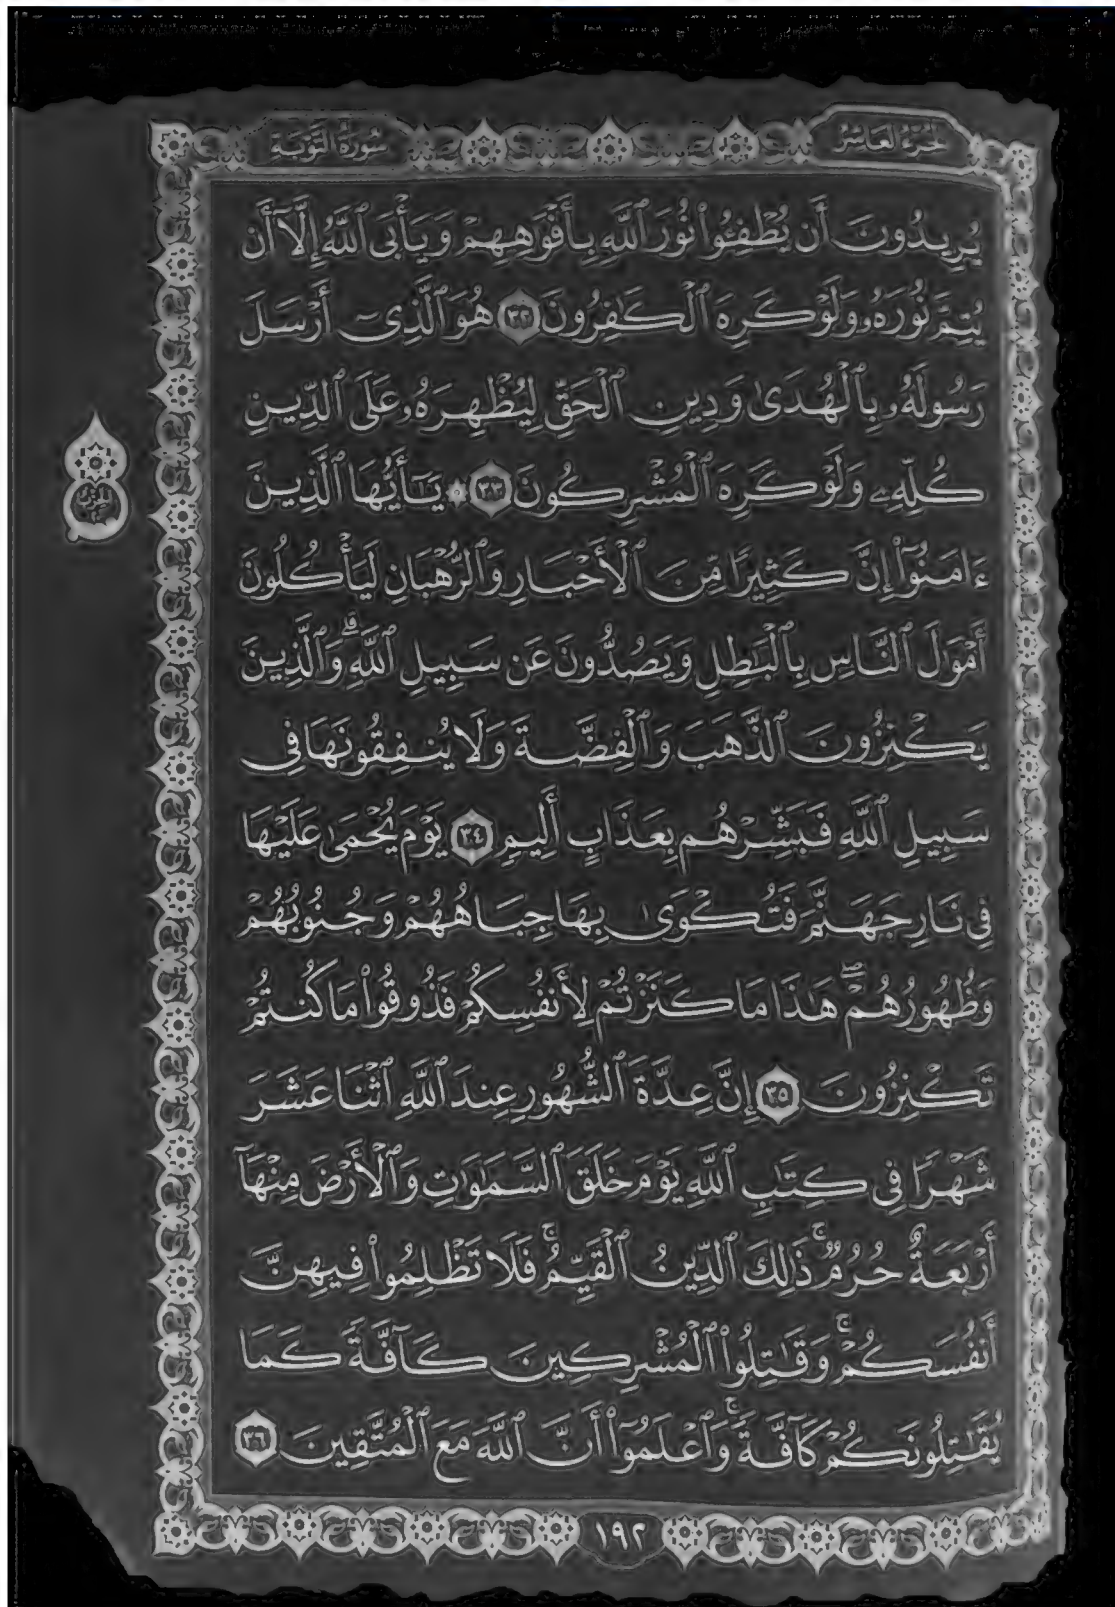 الجزء العاشر
سورة التوبة
يُرِيدُونَ أَن يُطْفِـُٔوا۟ نُورَ ٱللَّهِ بِأَفْوَٰهِهِمْ وَيَأْبَى ٱللَّهُ إِلَّآ أَن
يُتِمَّ نُورَهُۥ وَلَوْ كَرِهَ ٱلْكَـٰفِرُونَ ٣٢ هُوَ ٱلَّذِىٓ أَرْسَلَ
رَسُولَهُۥ بِٱلْهُدَىٰ وَدِينِ ٱلْحَقِّ لِيُظْهِرَهُۥ عَلَى ٱلدِّينِ
كُلِّهِۦ وَلَوْ كَرِهَ ٱلْمُشْرِكُونَ ٣٣ ۞ يَـٰٓأَيُّهَا ٱلَّذِينَ
ءَامَنُوٓا۟ إِنَّ كَثِيرًا مِّنَ ٱلْأَحْبَارِ وَٱلرُّهْبَانِ لَيَأْكُلُونَ
أَمْوَٰلَ ٱلنَّاسِ بِٱلْبَـٰطِلِ وَيَصُدُّونَ عَن سَبِيلِ ٱللَّهِ ۗ وَٱلَّذِينَ
يَكْنِزُونَ ٱلذَّهَبَ وَٱلْفِضَّةَ وَلَا يُنفِقُونَهَا فِى
سَبِيلِ ٱللَّهِ فَبَشِّرْهُم بِعَذَابٍ أَلِيمٍ ٣٤ يَوْمَ يُحْمَىٰ عَلَيْهَا
فِى نَارِ جَهَنَّمَ فَتُكْوَىٰ بِهَا جِبَاهُهُمْ وَجُنُوبُهُمْ
وَظُهُورُهُمْ ۖ هَـٰذَا مَا كَنَزْتُمْ لِأَنفُسِكُمْ فَذُوقُوا۟ مَا كُنتُمْ
تَكْنِزُونَ ٣٥ إِنَّ عِدَّةَ ٱلشُّهُورِ عِندَ ٱللَّهِ ٱثْنَا عَشَرَ
شَهْرًا فِى كِتَـٰبِ ٱللَّهِ يَوْمَ خَلَقَ ٱلسَّمَـٰوَٰتِ وَٱلْأَرْضَ مِنْهَآ
أَرْبَعَةٌ حُرُمٌ ۚ ذَٰلِكَ ٱلدِّينُ ٱلْقَيِّمُ ۚ فَلَا تَظْلِمُوا۟ فِيهِنَّ
أَنفُسَكُمْ ۚ وَقَـٰتِلُوا۟ ٱلْمُشْرِكِينَ كَآفَّةً كَمَا
يُقَـٰتِلُونَكُمْ كَآفَّةً ۚ وَٱعْلَمُوٓا۟ أَنَّ ٱللَّهَ مَعَ ٱلْمُتَّقِينَ ٣٦
١٩٢